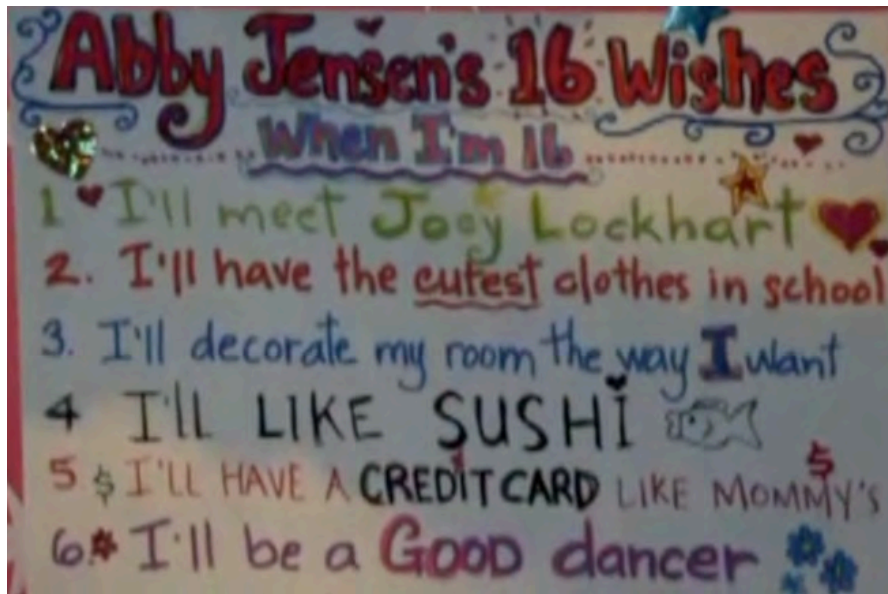 Abby Jensen's 16 Wishes
When I'm 16
1 I'll meet Joey Lockhart
2. I'll have the cutest clothes in school
3. I'll decorate my room the way I want
4 I'll LIKE SUSHi
5 $ I'LL HAVE A CREDiT CARD LIKE MOMMY'S $
6. I'll be a GOOD dancer